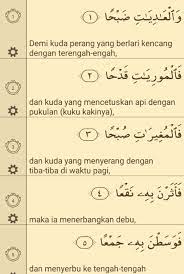 وَٱلْعَٰدِيَٰتِ ضَبْحًا ١
Demi kuda perang yang berlari kencang
dengan terengah-engah,
فَٱلْمُورِيَٰتِ قَدْحًا ٢
dan kuda yang mencetuskan api dengan
pukulan (kuku kakinya),
فَٱلْمُغِيرَٰتِ صُبْحًا ٣
dan kuda yang menyerang dengan
tiba-tiba di waktu pagi,
فَأَثَرْنَ بِهِۦ نَقْعًا ٤
maka ia menerbangkan debu,
فَوَسَطْنَ بِهِۦ جَمْعًا ٥
dan menyerbu ke tengah-tengah